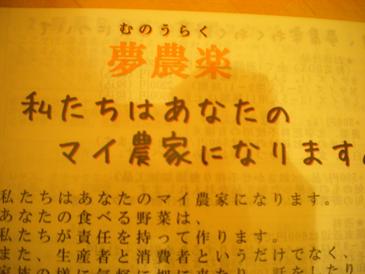 むのうらく
夢農楽
私たちはあなたの
マイ農家になります。
私たちはあなたのマイ農家になります。
あなたの食べる野菜は、
私たちが責任を持って作ります。
また、生産者と消費者というだけでなく、
家族の様に気軽に畑に来たり、話をしたり